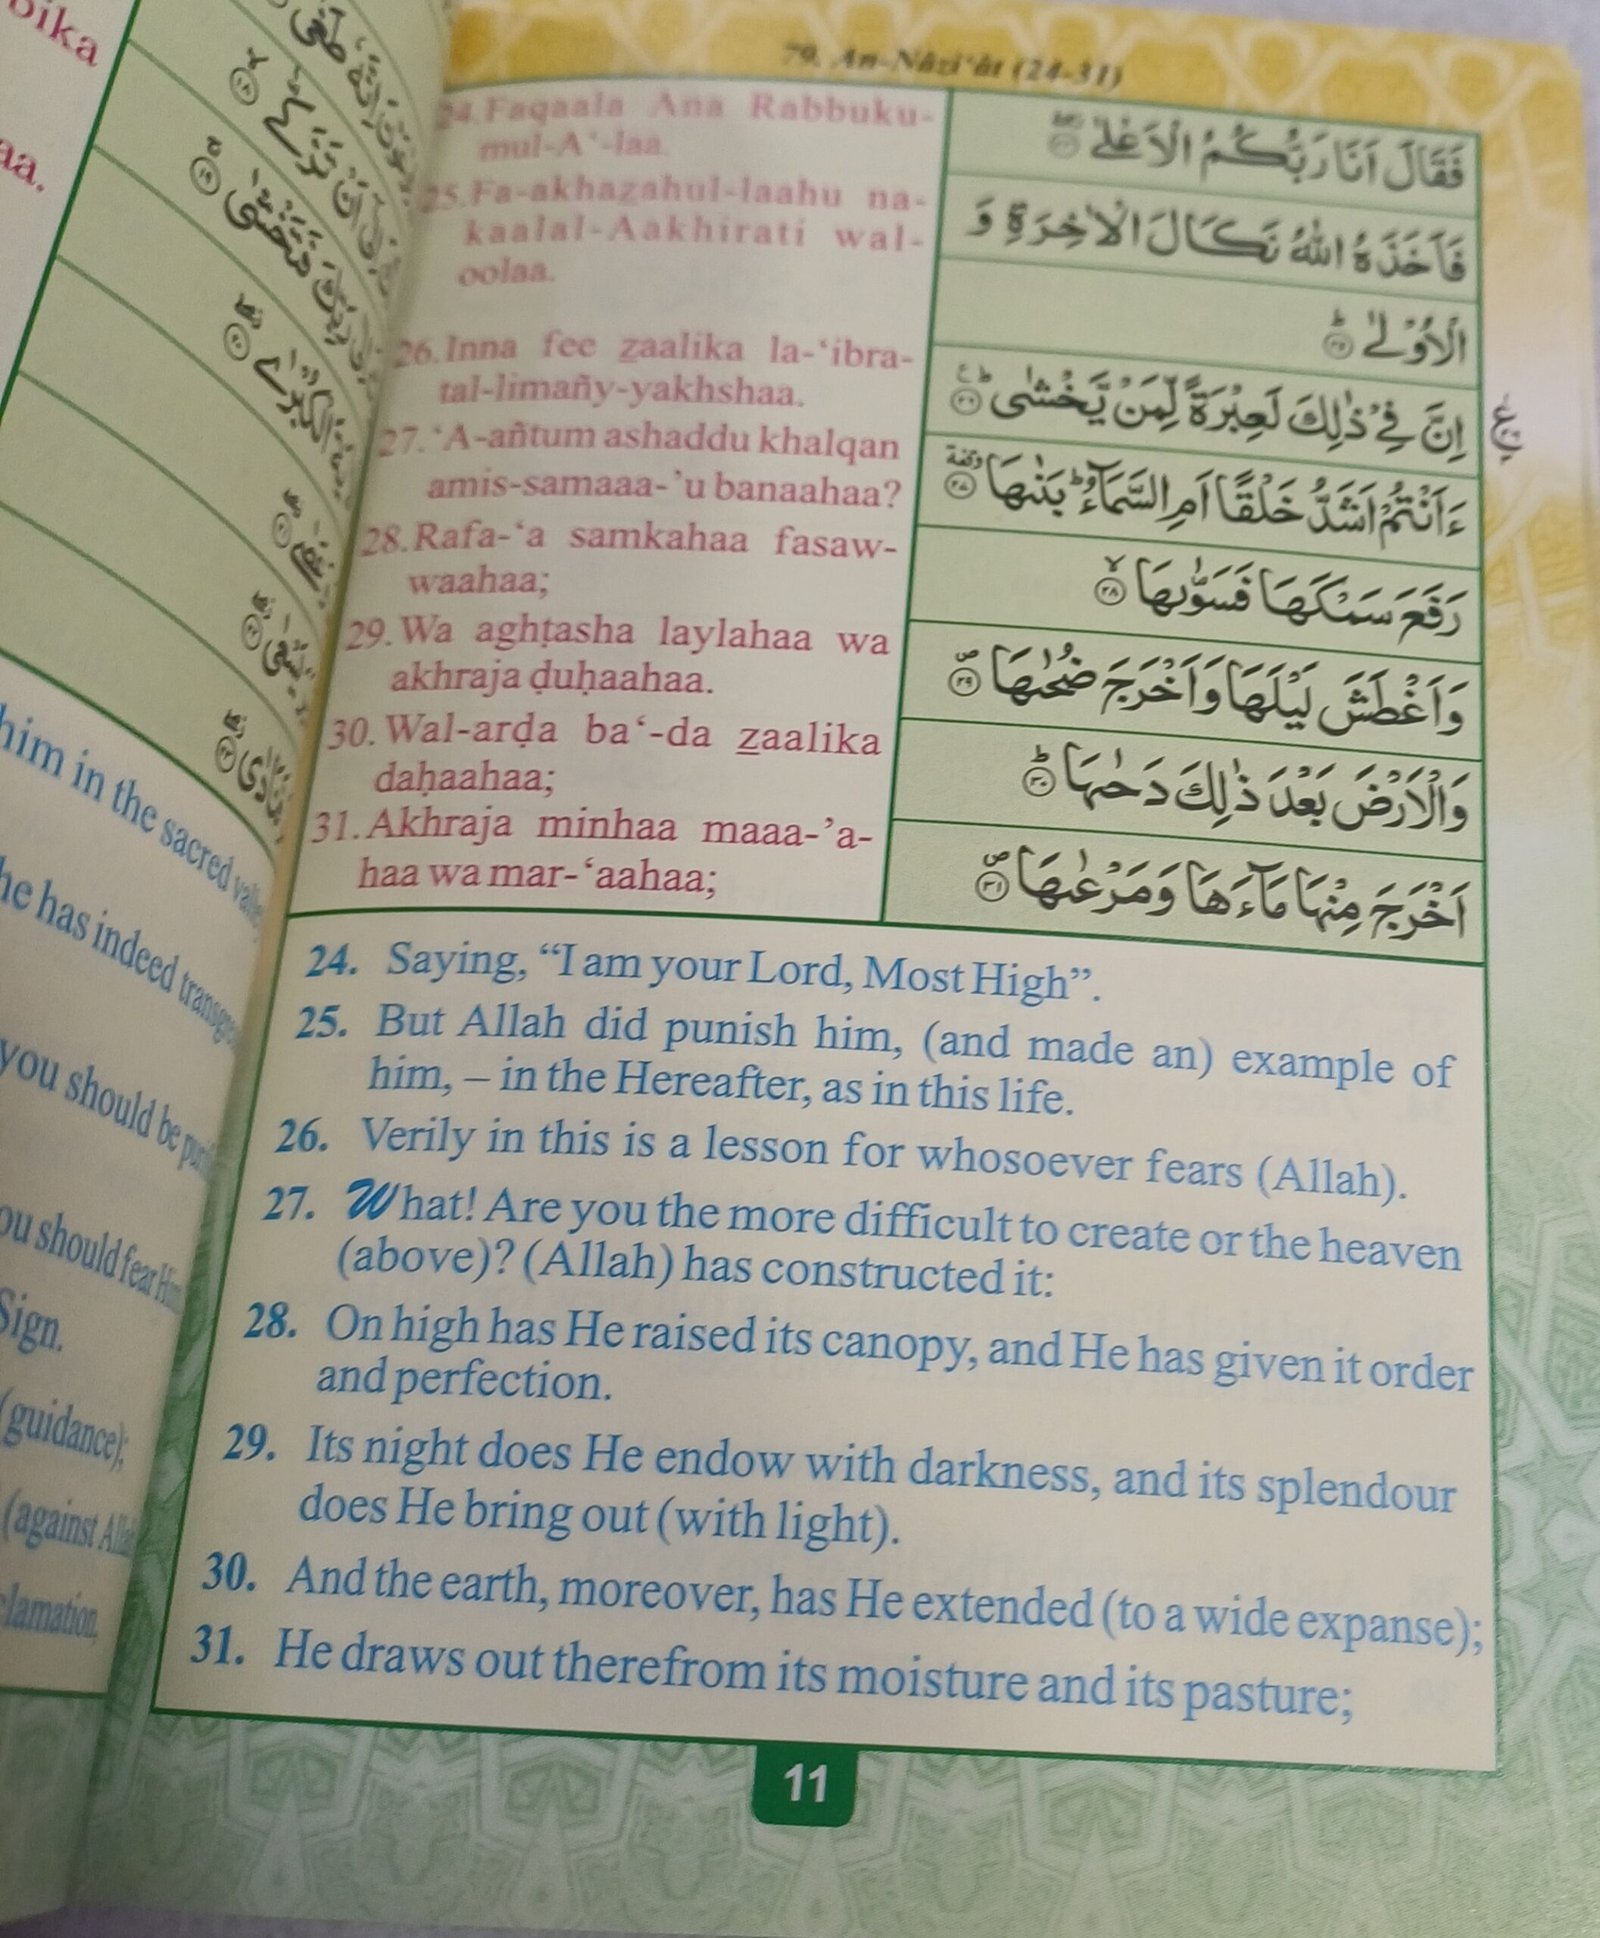 79. An-Nâzi‘ât (24-31)
24. Faqaala Ana Rabbuku-
mul-A‘-laa.
25. Fa-akhazahul-laahu na-
kaalal-Aakhirati wal-
oolaa.
26. Inna fee zaalika la-‘ibra-
tal-limañy-yakhshaa.
27. ‘A-añtum ashaddu khalqan
amis-samaaa-’u banaahaa?
28. Rafa-‘a samkahaa fasaw-
waahaa;
29. Wa aghṭasha laylahaa wa
akhraja ḍuḥaahaa.
30. Wal-arḍa ba‘-da zaalika
daḥaahaa;
31. Akhraja minhaa maaa-’a-
haa wa mar-‘aahaa;
فَقَالَ اَنَا رَبُّكُمُ الْاَعْلٰى ۝۲۴
فَاَخَذَهُ اللّٰهُ نَكَالَ الْاٰخِرَةِ وَ
الْاُوْلٰى ؕ۝۲۵
اِنَّ فِيْ ذٰلِكَ لَعِبْرَةً لِّمَنْ يَّخْشٰى ؕ۝۲۶ ع
ءَاَنْتُمْ اَشَدُّ خَلْقًا اَمِ السَّمَآءُ ؕ بَنٰىهَا ۝۲۸ وقفة
رَفَعَ سَمْكَهَا فَسَوّٰىهَا ۙ۝۲۸
وَاَغْطَشَ لَيْلَهَا وَاَخْرَجَ ضُحٰىهَا ۪۝۲۹
وَالْاَرْضَ بَعْدَ ذٰلِكَ دَحٰىهَا ؕ۝۳۰
اَخْرَجَ مِنْهَا مَآءَهَا وَمَرْعٰىهَا ۪۝۳۱
24. Saying, “I am your Lord, Most High”.
25. But Allah did punish him, (and made an) example of
him, – in the Hereafter, as in this life.
26. Verily in this is a lesson for whosoever fears (Allah).
27. What! Are you the more difficult to create or the heaven
(above)? (Allah) has constructed it:
28. On high has He raised its canopy, and He has given it order
and perfection.
29. Its night does He endow with darkness, and its splendour
does He bring out (with light).
30. And the earth, moreover, has He extended (to a wide expanse);
31. He draws out therefrom its moisture and its pasture;
11
him in the sacred
he has indeed
you should be
should fear
Sign.
(guidance);
(against